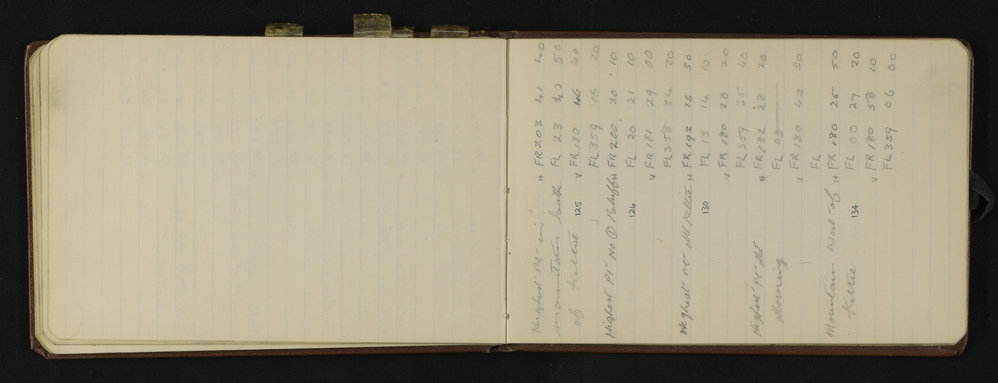 Highest Pt in H FR 203 41 40
mountain South FL 23 42 50
of Keltie V FR 180 46 40
125
FL 359 16 20
Highest Pt No ① Bluff H FR 200 20 10
FL 20 21 10
126
V FR 181 29 00
FL 358 34 20
Highest Pt Mt Keltie H FR 193 13 30
FL 13 14 10
130
V FR 180 28 20
FL 359 35 40
Highest Pt Mt H FR 182 28 20
Morning FL 03
V FR 180 43 50
FL
Mountain West of H FR 180 25 50
Keltie FL 00 27 20
134
V FR 180 58 10
FL 359 06 00